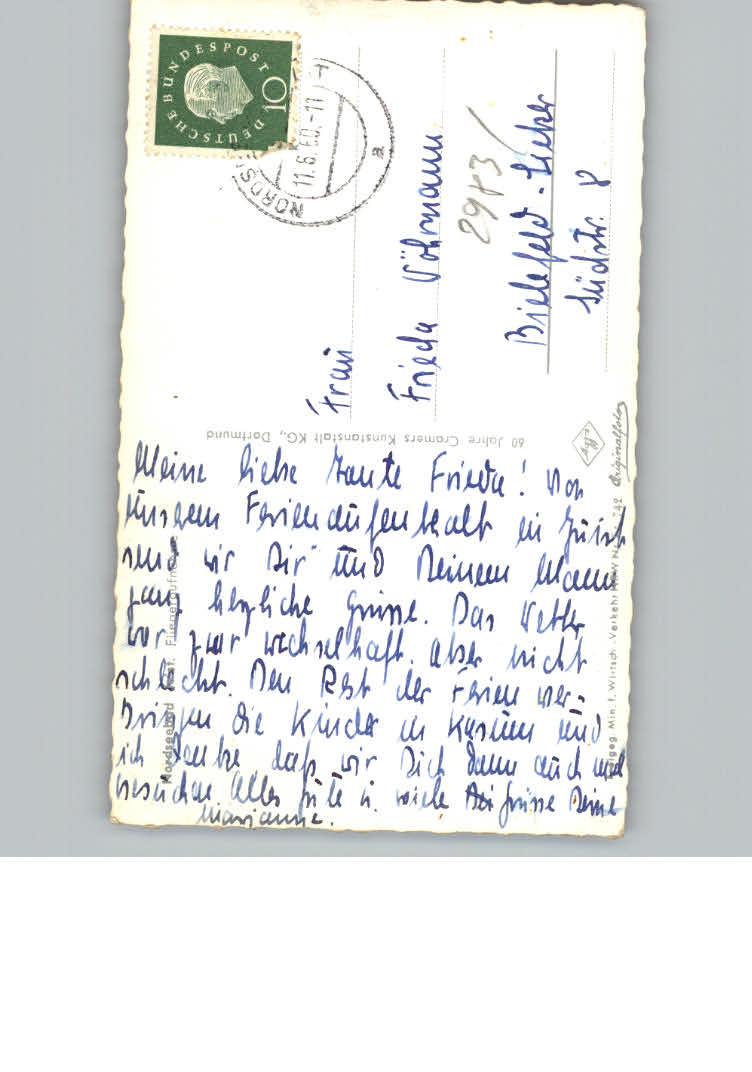 DEUTSCHE BUNDESPOST
10
NORDS
11.6.60.-11
a
Frau
Frieda Vöhrmann
2983
Bielefeld-Sieker
Südstr. 8
60 Jahre Cramers Kunstanstalt KG., Dortmund
Originalfoto
Nordseebad Juist. Fliegeraufnahme
Freigeg. Min. f. Wirtsch. u. Verkehr NRW
Meine liebe Tante Frieda! Von
unserem Ferienaufenthalt in Juist
senden wir Dir und Deinem Mann
ganz herzliche Grüsse. Das Wetter
war zwar wechselhaft, aber nicht
schlecht. Den Rest der Ferien ver-
bringen die Kinder in Küsum und
ich denke daß wir Dich dann auch mal
besuchen. Alles Gute u. viele Grüsse Deine
Marianne.